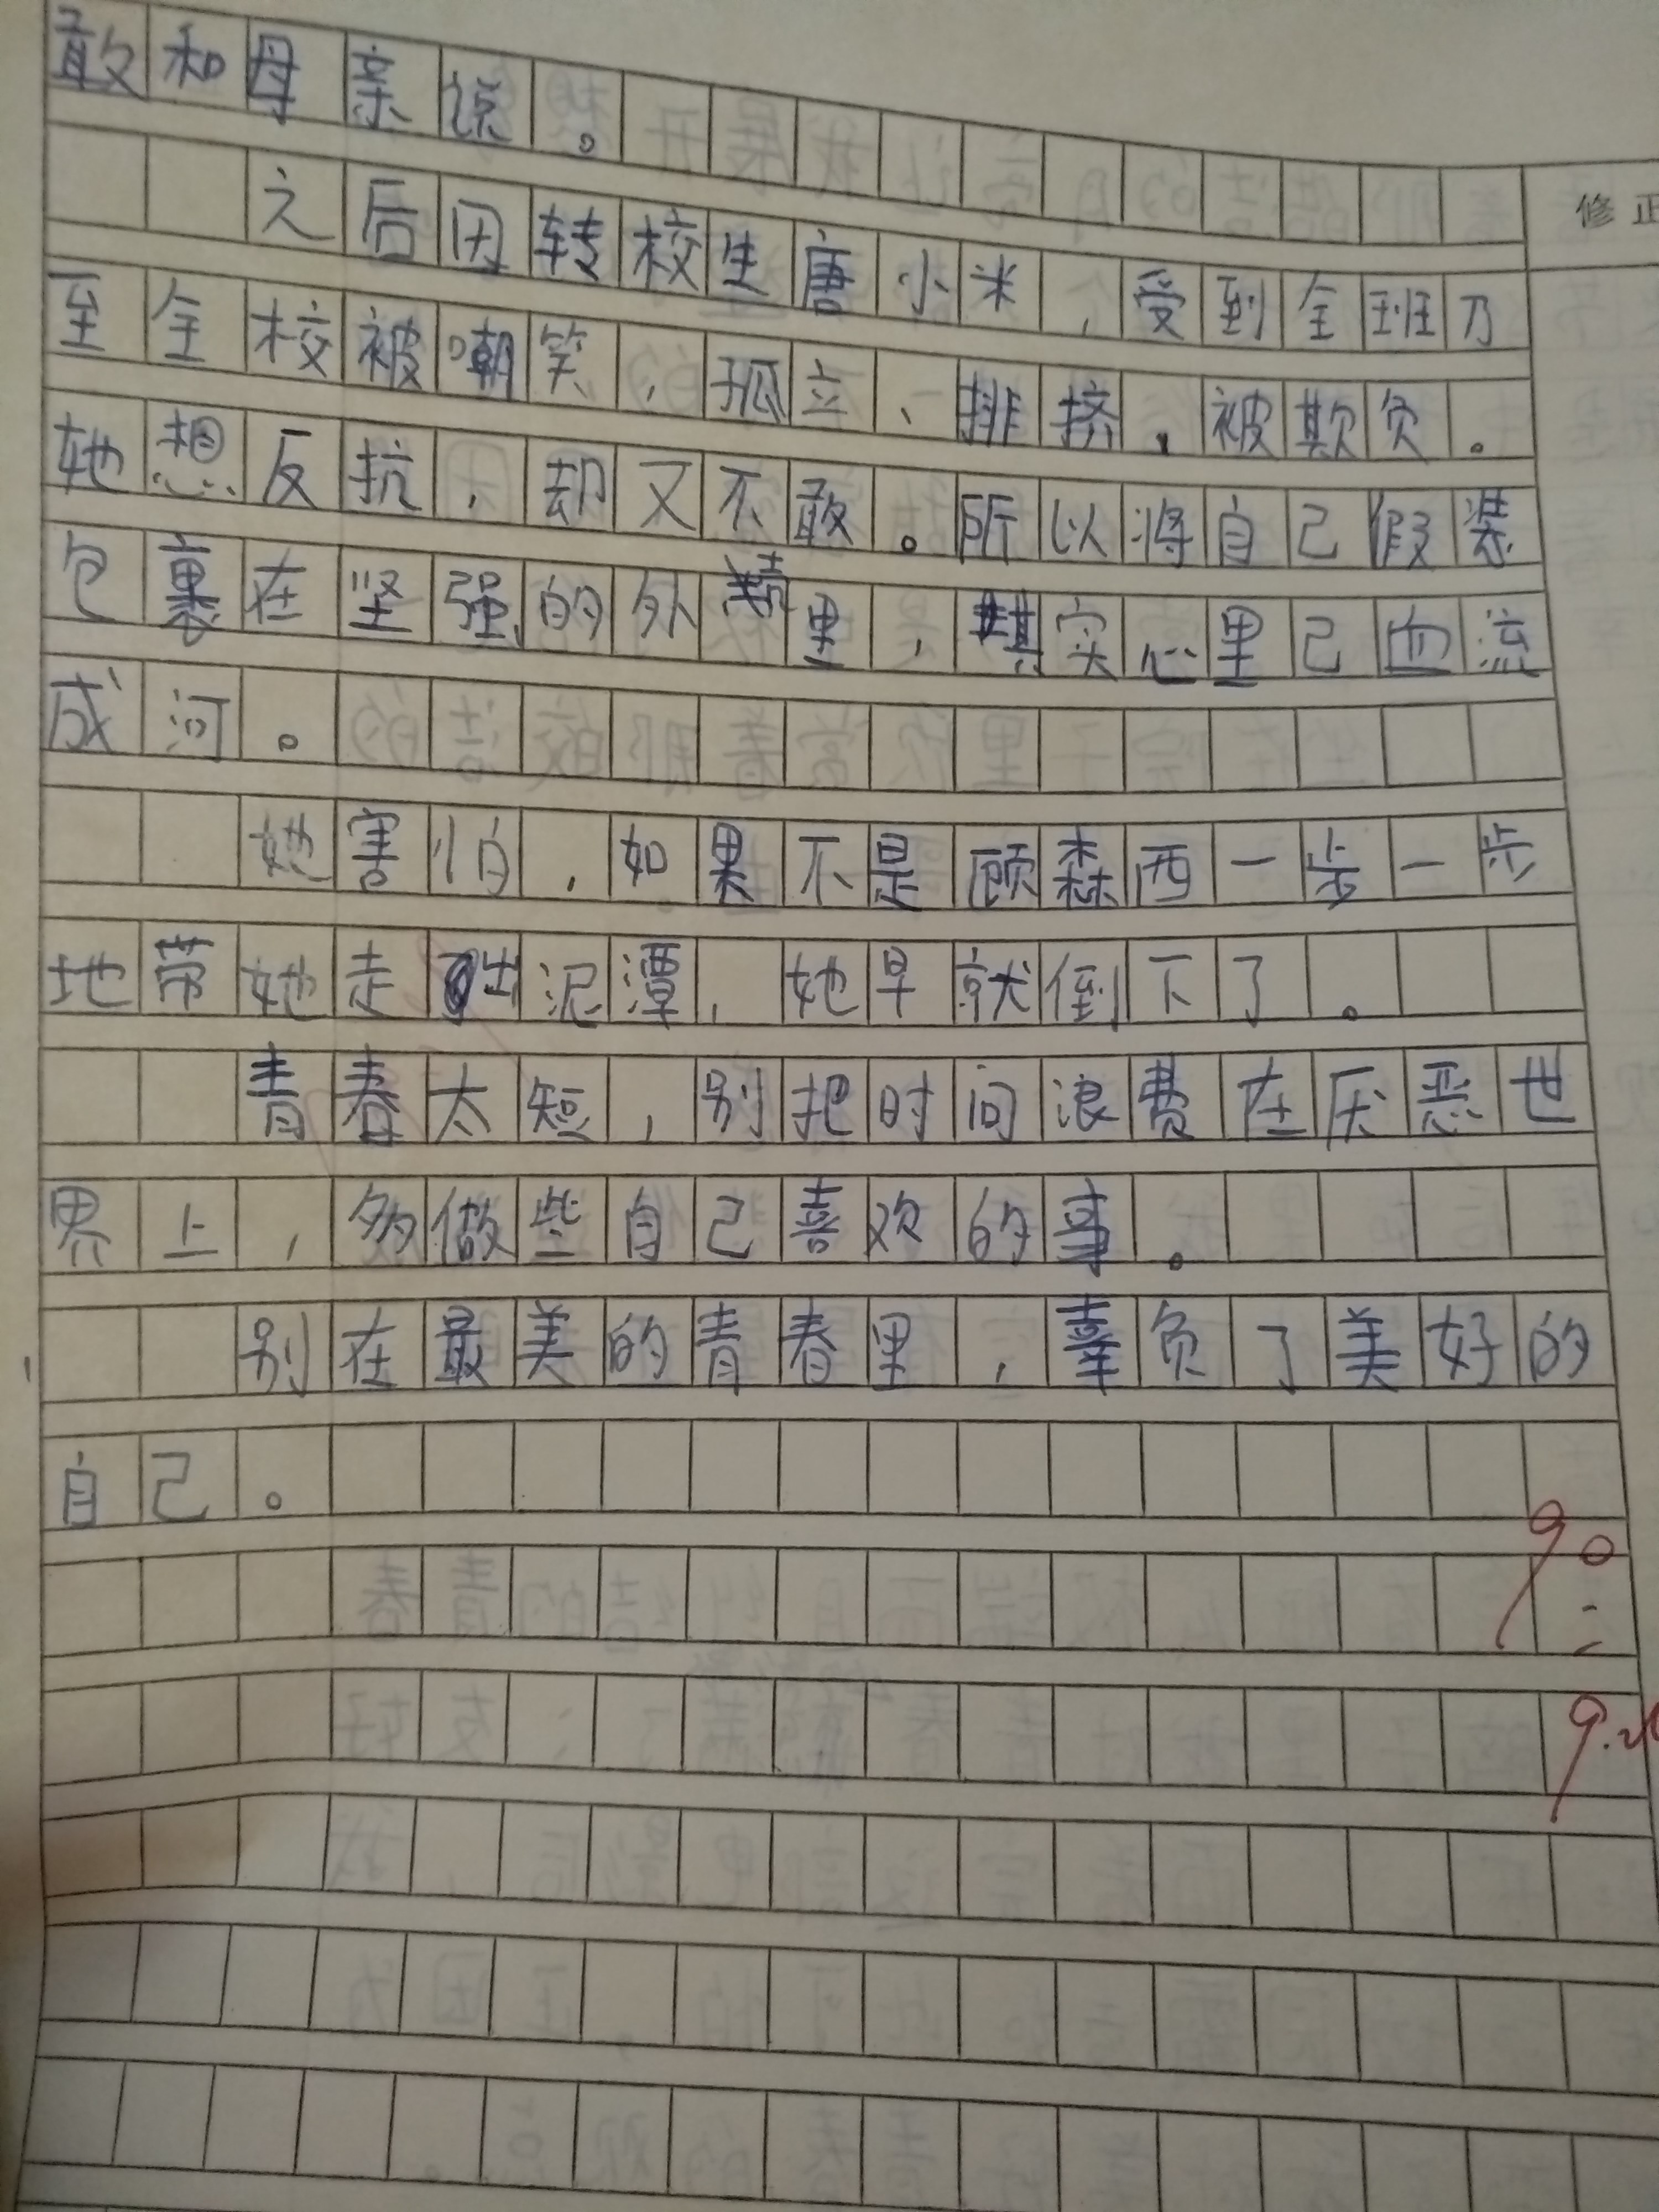 敢和母亲说。
修正
之后因转校生唐小米，受到全班乃
至全校被嘲笑，孤立、排挤，被欺负。
她想反抗，却又不敢。所以将自己假装
包裹在坚强的外 里，其实心里已血流
成河。
她害怕，如果不是顾森西一步一步
地带她走出泥潭，她早就倒下了。
青春太短，别把时间浪费在厌恶世
界上，多做些自己喜欢的事。
别在最美的青春里，辜负了美好的
自己。
90